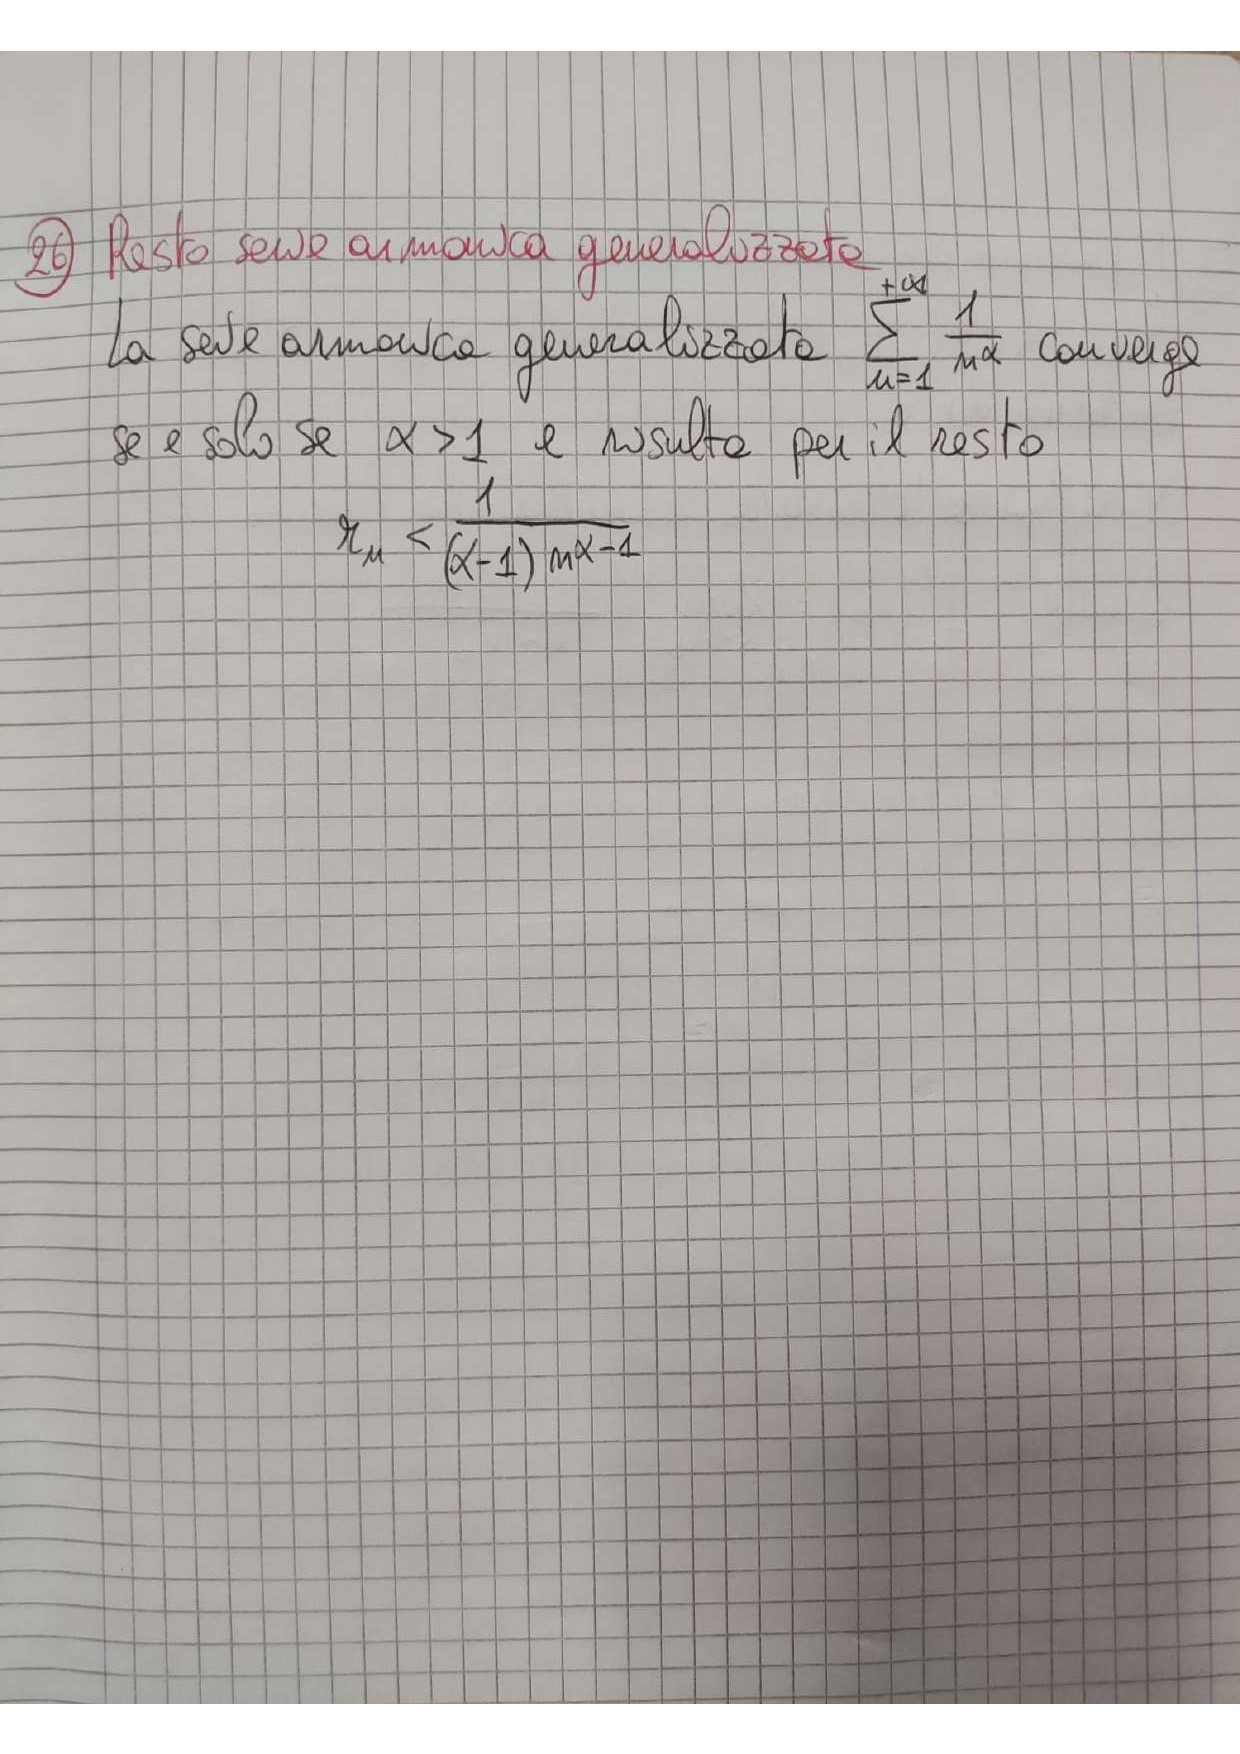 26) Resto serie armonica generalizzata
La serie armonica generalizzata $\sum_{n=1}^{+\infty} \frac{1}{n^\alpha}$ converge
se e solo se α > 1 e risulta per il resto
$r_n < \frac{1}{(\alpha-1) n^{\alpha-1}}$